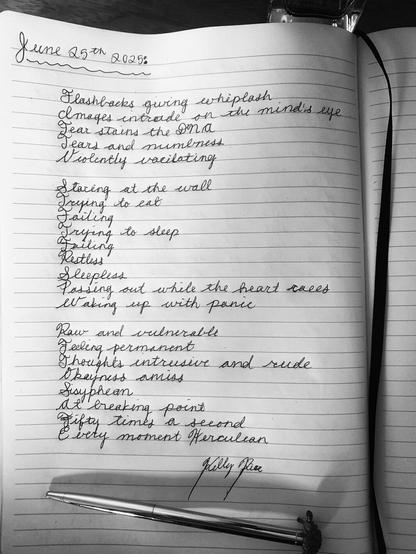 June 25th 2025:
Flashbacks giving whiplash
Images intrude on the mind's eye
Fear stains the DNA
Tears and numbness
Violently vacilating
Staring at the wall
Trying to eat
Failing
Trying to sleep
Failing
Restless
Sleepless
Passing out while the heart races
Waking up with panic
Raw and vulnerable
Feeling permanent
Thoughts intrusive and rude
Okayness amiss
Sisyphean
At breaking point
Fifty times a second
Every moment Herculean
Kelly